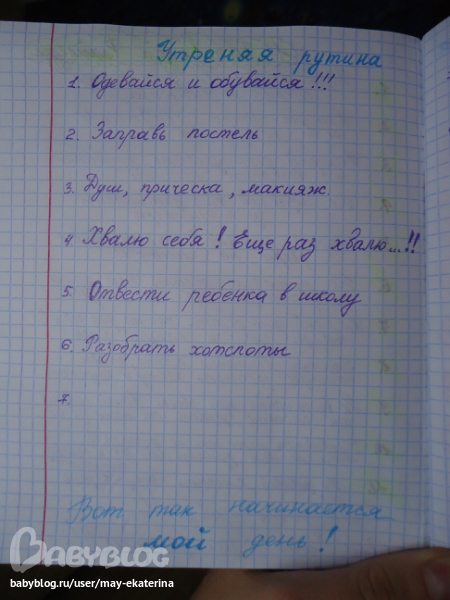 Утреняя рутина
1. Одевайся и обувайся!!!
2. Заправь постель
3. Душ, прическа, макияж.
4 Хвалю себя! Еще раз хвалю...!!
5. Отвести ребенка в школу
6. Разобрать хотспоты
7.
Вот так начинается
мой день!
BABYBLOG
babyblog.ru/user/may-ekaterina